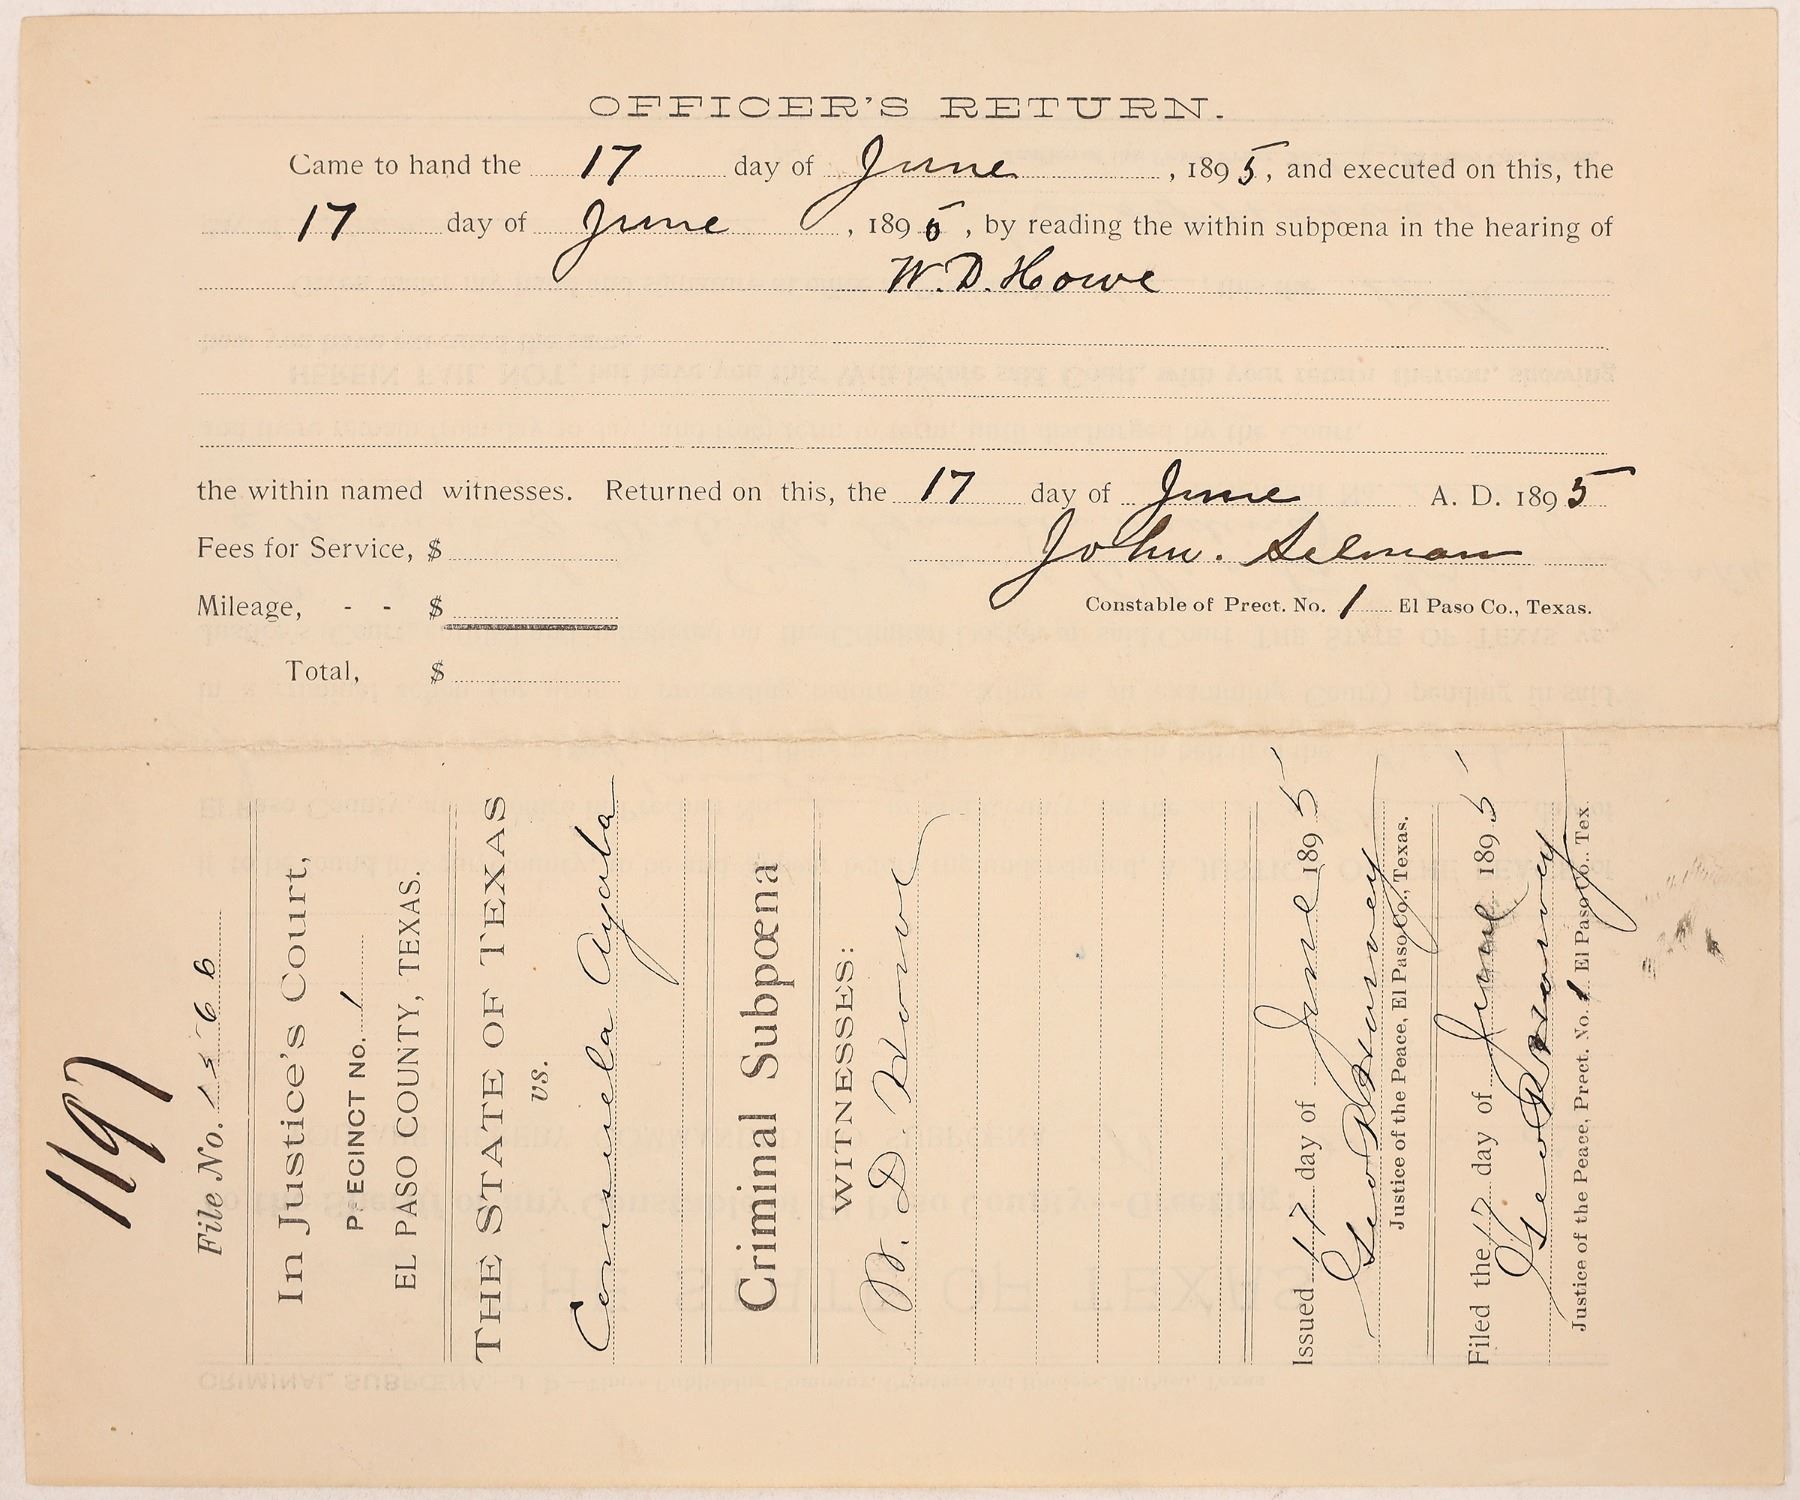 OFFICER'S RETURN.
Came to hand the 17 day of June, 1895, and executed on this, the
17 day of June, 1895, by reading the within subpœna in the hearing of
W. D. Howe
the within named witnesses. Returned on this, the 17 day of June A. D. 1895
Fees for Service, $
John. Selman
Mileage, - - $
Constable of Prect. No. 1 El Paso Co., Texas.
Total, $
1197
File No. 1566
In Justice's Court,
P ECINCT No. 1
EL PASO COUNTY, TEXAS.
THE STATE OF TEXAS
vs.
Consuela Ayala
Criminal Subpœna
WITNESSES:
W. D. Howe
Issued 17 day of June 1895
Geo Harvey
Justice of the Peace, El Paso Co., Texas.
Filed the 17 day of June 1895
Geo Harvey
Justice of the Peace, Prect. No. 1 El Paso Co., Tex